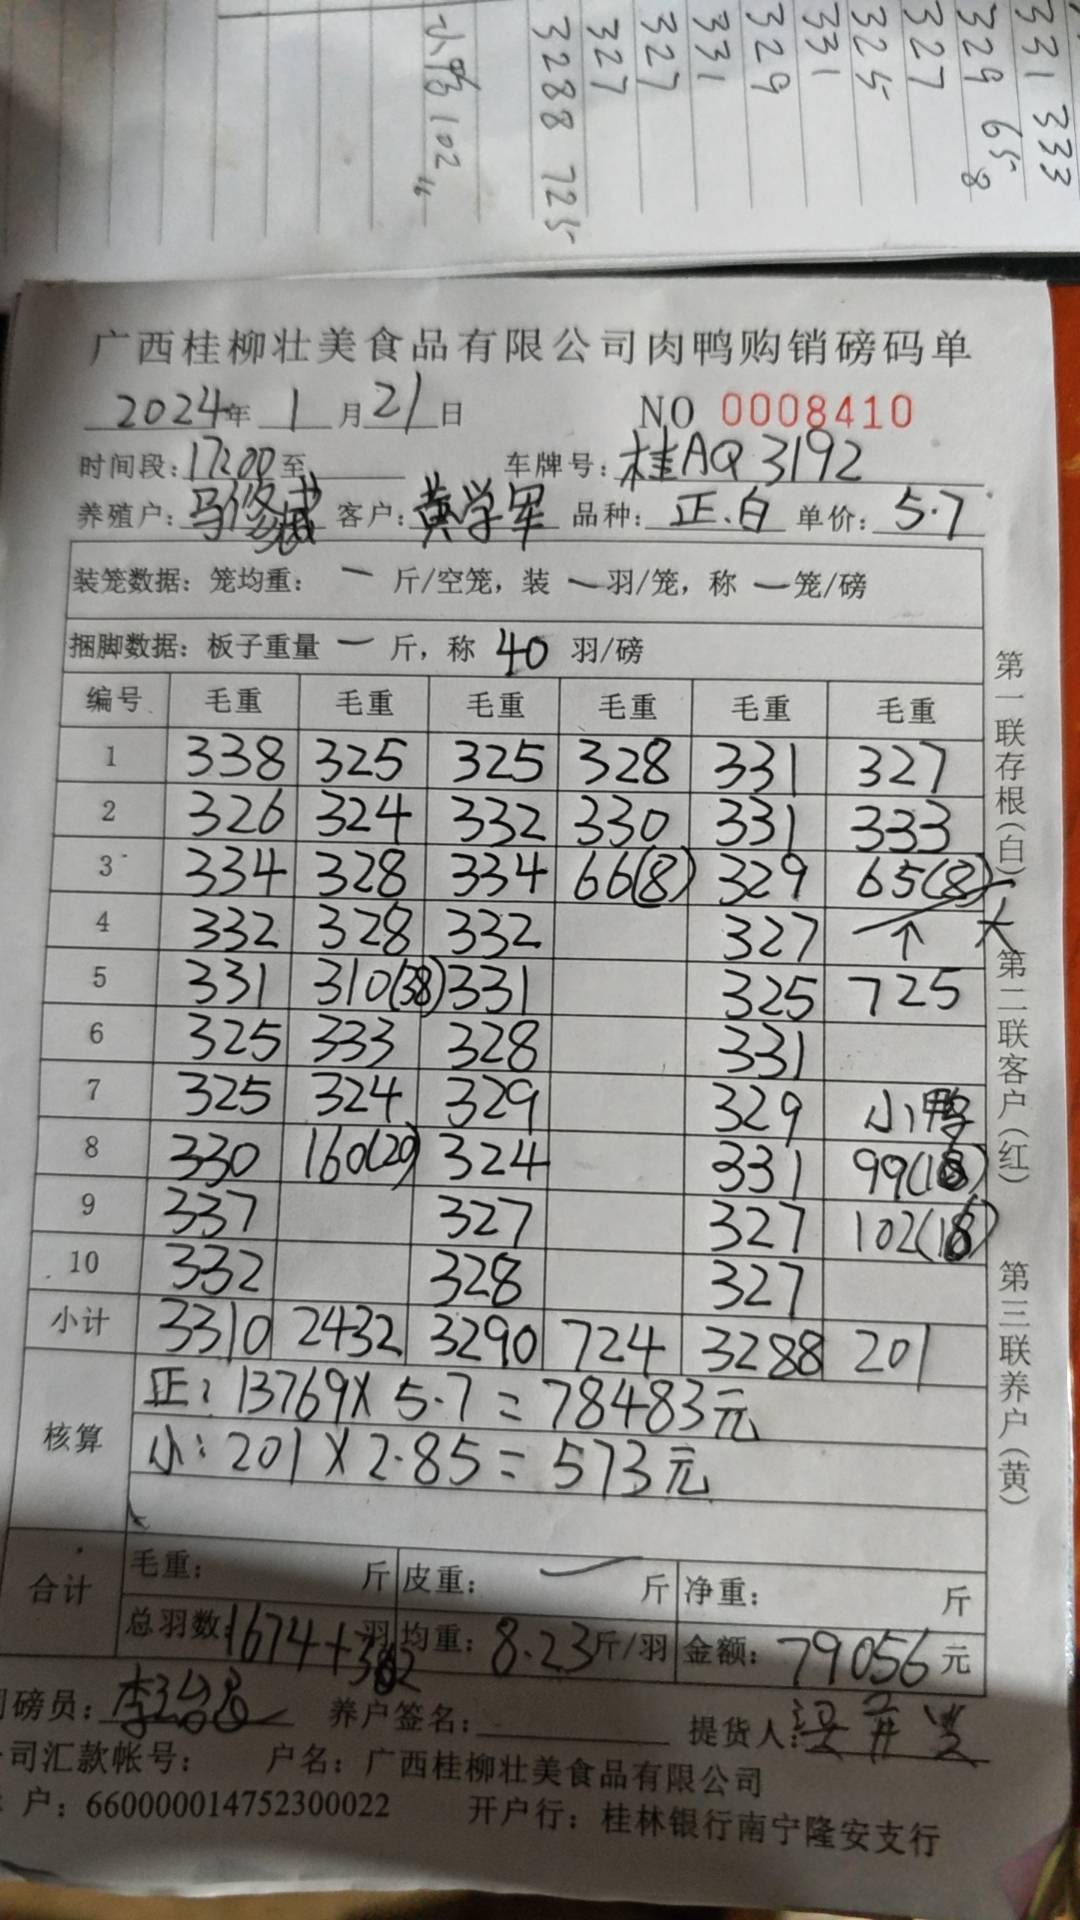 331 333
329 65 8
327
325
331
329
331
327
327
3288 725
小鸭102
广西桂柳壮美食品有限公司肉鸭购销磅码单
2024年 1月21日 NO 0008410
时间段:17:00至 车牌号:桂AQ3192
养殖户: 客户:黄学军 品种:正.白 单价:5.7
装笼数据:笼均重: 一 斤/空笼,装 一 羽/笼,称 一 笼/磅
捆脚数据:板子重量 一 斤,称 40 羽/磅
编号 毛重 毛重 毛重 毛重 毛重 毛重
1 338 325 325 328 331 327
2 326 324 332 330 331 333
3 334 328 334 66(8) 329 65(8)
4 332 328 332 327 ↑ 大
5 331 310(38) 331 325 725
6 325 333 328 331
7 325 324 329 329 小鸭
8 330 160(20) 324 331 99(18)
9 337 327 327 102(18)
10 332 328 327
小计 3310 2432 3290 724 3288 201
核算 正:13769×5.7=78483元
小:201×2.85=573元
合计 毛重: 斤 皮重: 一 斤 净重: 斤
总羽数:1674+ 羽 均重:8.23斤/羽 金额:79056元
磅员: 养户签名: 提货人:
司汇款帐号: 户名:广西桂柳壮美食品有限公司
户:660000014752300022 开户行:桂林银行南宁隆安支行
第一联存根(白) 第二联客户(红) 第三联养户(黄)